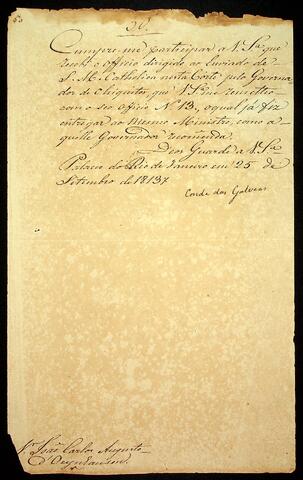 36.
Cumpre-me participar a V. Sa. que
recebi o officio dirigido ao Enviado de
S. M. Catholica nesta Corte pelo Governa
dor de Chiquitos, que V. Sa. me remetteo
com o seo Officio No. 13, o qual já fiz
entregar ao mesmo Ministro, como a
quelle Governador recomenda.
Deos Guarde a V. Sa.
Palacio do Rio de Janeiro em 25 de
Setembro de 1813
Conde das Galveas
Sr. João Carlos Augusto
d'Oeynhausen.